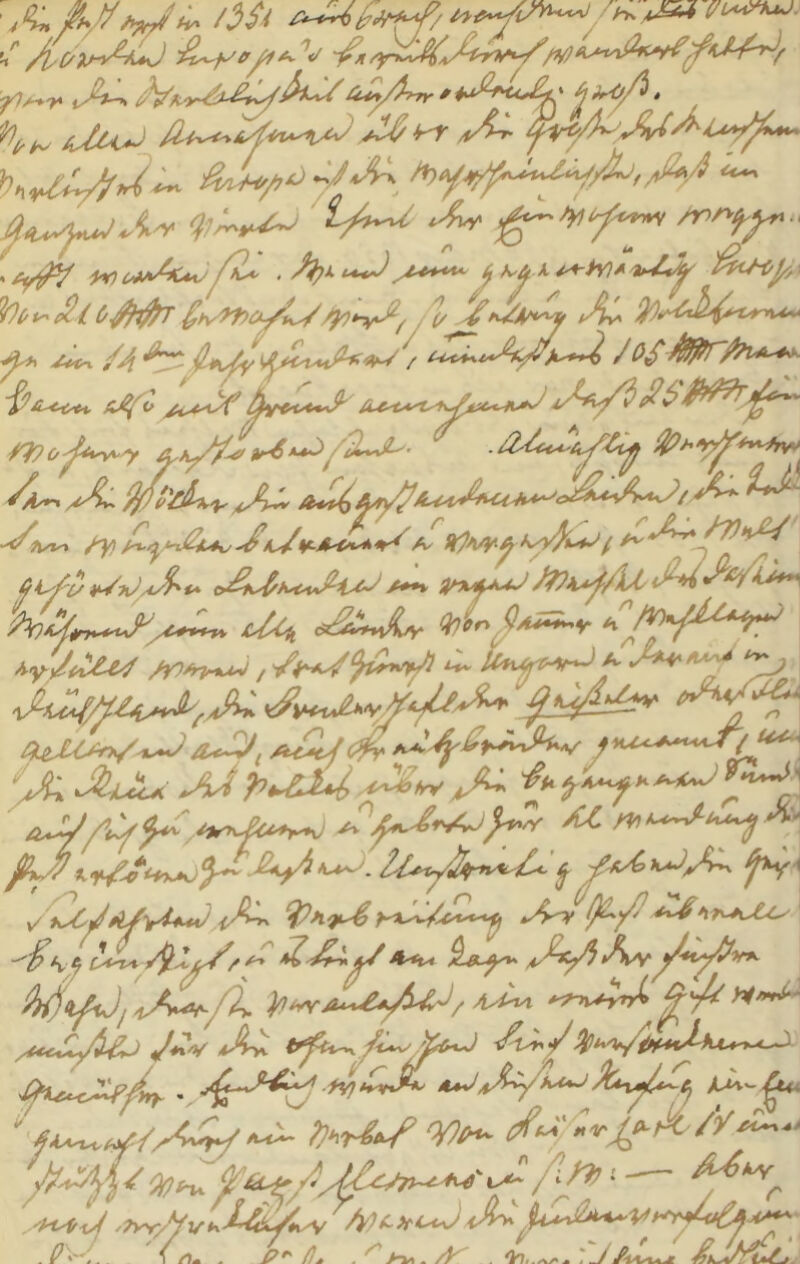 die Pest erst in 1351 ausbrach, nachdem sie das Süden
u Norden Europa's bereits durchwandert hatte,
war die Sterblichkeit außerordentl. groß.
Von allen Annahmen über die Größe des Menschen
Verlustes in Europa ist die Wahrscheinlichste, daß im
Ganzen der Vierte Theil der Einwohner wegge-
rafft worden sei. Wenn nun gegenwärtig Europa
Von 210 bewohnt wird, so betrug die Volksmen
ge im 14ten Jahrhundert, mindestens 105 Man
kann also mit Grund annehmen daß 25 Ein
wohner gestorben sind. Almählig Verschmerz
ten die Völker die ausgestandenen Leiden, die Tod
ten wurden betrauert u vergessen, u die Welt
gehörte den Lebenden im regen Wechsel des Daseins
Während nun alle Länder von Jammer u Wehklagen
erfüllt waren, trat zuerst in Ungarn u darauf in
Deutschland, die Bruderschaft der Geißeler oder Fla
gellanten auf, auch Kreutzbrüder genannt, um
die Reue des Volkes über die begangenen Sünd
auf sich zu nehmen u Gebete zur Abwendung der
Pest ertönen zu laßen. Unstreitig haben die Geis
selfahrten die Verbreitung der Pest überall
begünstigt, u es liegt am Tage daß der finstre
Wahn, der sie Veranlaßte, ein neues Gift werden
mußte für die ohnehin schon tief Versunkenen
Gemüther. Endlich wurde an diesem Unfug ein En
gemacht durch ein Verbot Von Kaiser Carl IV un
stützt von Papst Clemens u s: w: — Aber
noch erschrecklicher waren die Judenverfolgun